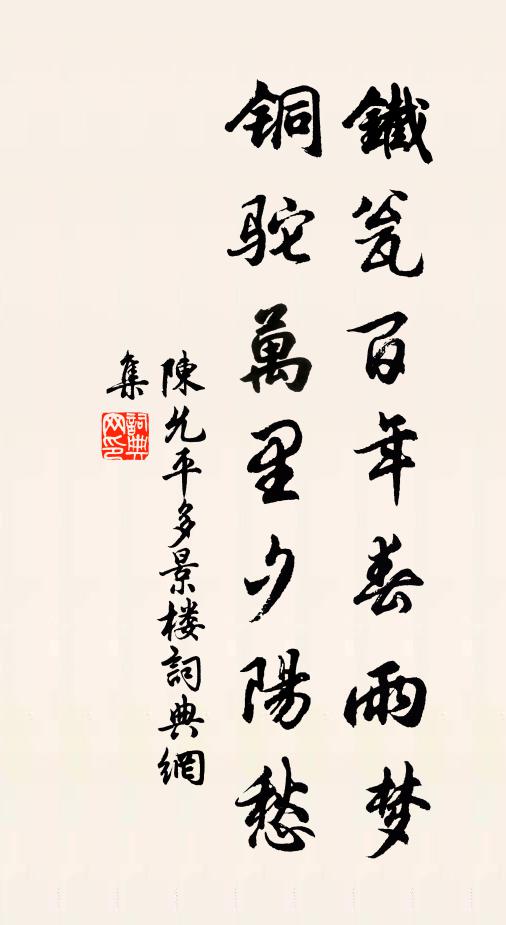 鐵瓮百年春雨梦
铜驼萬里夕陽愁
陳允平多景楼詞典網
集
詞典网印